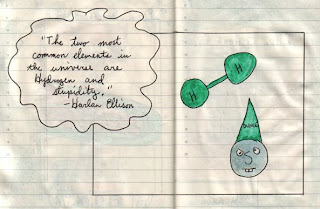 "The two most
common elements in
the universe are
Hydrogen and
stupidity."
-Harlan Ellison
H
H
DUNCE